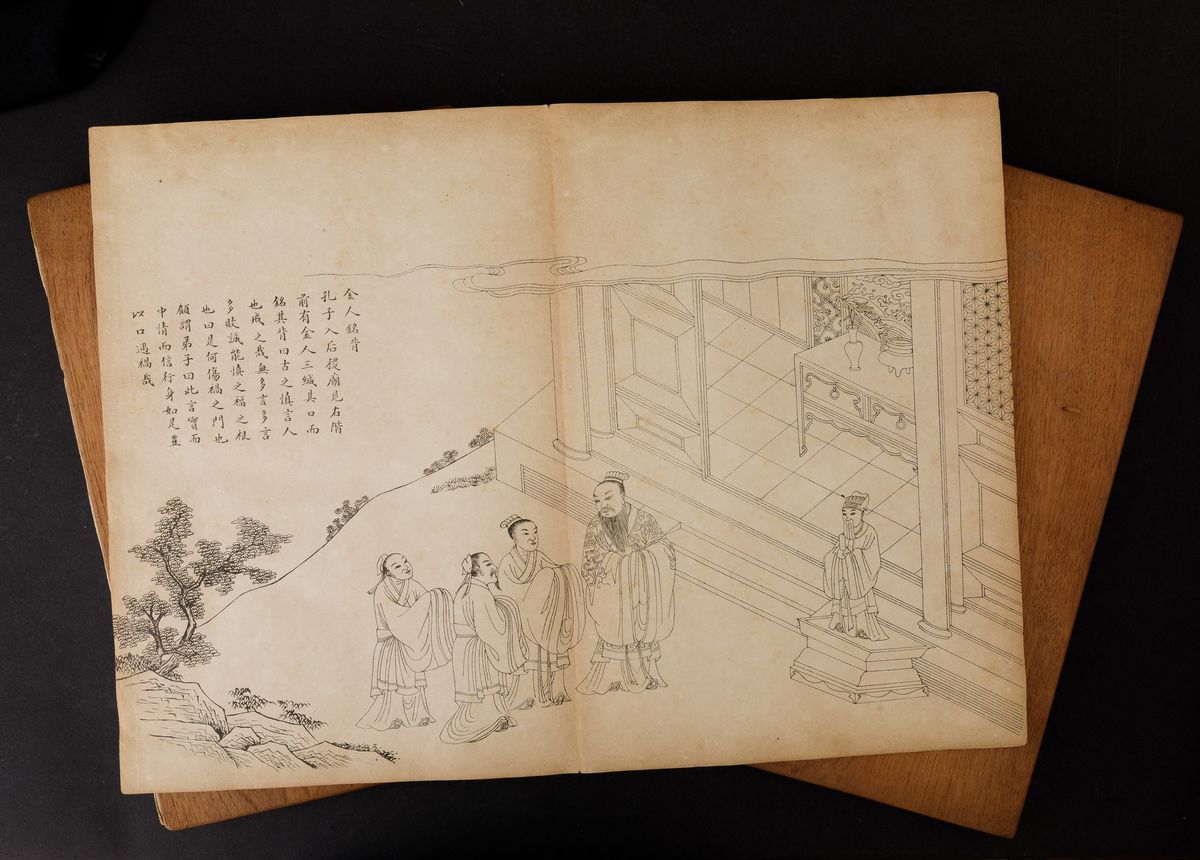 金人銘背
孔子入后稷廟見右階
前有金人三緘其口而
銘其背曰古之慎言人
也戒之哉無多言多言
多敗誠能慎之福之根
也曰是何傷禍之門也
顧謂弟子曰此言實而
中情而信行身如是豈
以口過禍哉